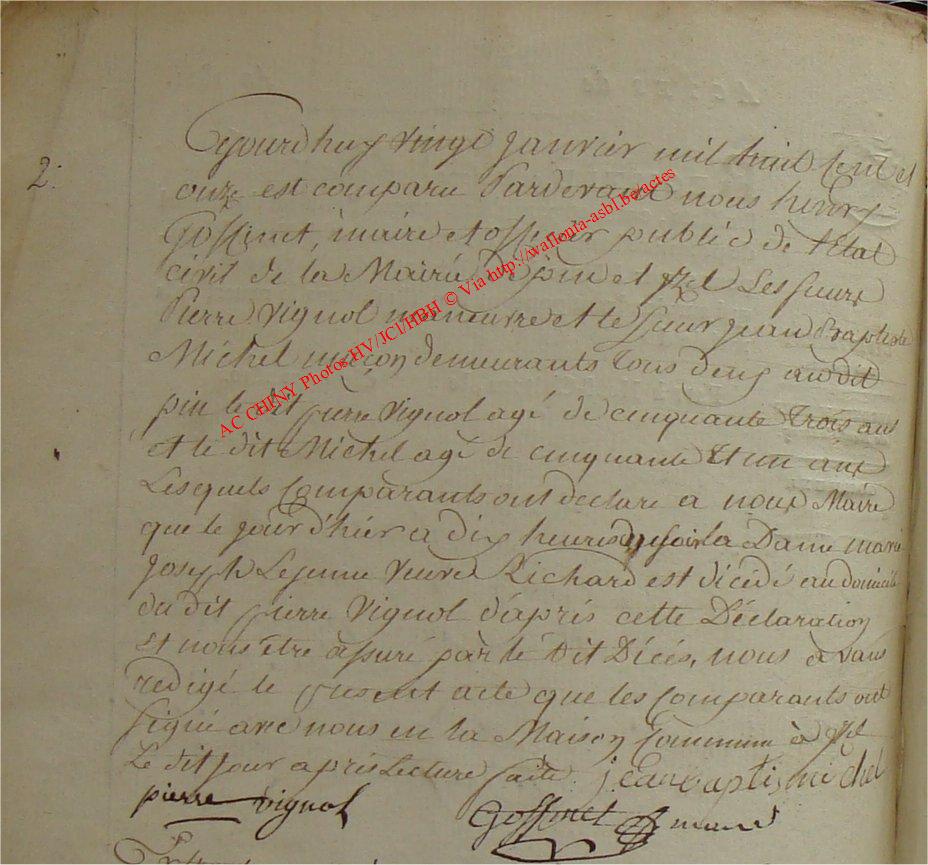 2.
Cejourdhuy vingt Janvier mil huit Cent et
onze est comparu Pardevant nous henry
Goffinet, maire et officier public de l'Etat
civil de la Mairie de pin et Izel Les sieurs
Pierre Vignol maneuvre et le sieur jean Baptiste
Michel maçon demeurants tous deux audit
pin le dit pierre Vignol agé de cinquante trois ans
et le dit Michel agé de cinquante et un ans
Lesquels Comparants ont declare a nous Maire
que le jour d'hier a dix heures du soir la Dame marie
Joseph Lejeune veuve Richard est décedé au domicile
du dit pierre Vignol d'après cette Déclaration
et nous être assuré par le dit Décès, nous avons
redigé le present acte que les Comparants ont
signé avec nous en la Maison Commune à Izel
Le dit jour après Lecture faite. jean baptis michel
pierre vignol Goffinet maire
AC CHINY Photos HV/JCl/HBH © Via http://wallonia-asbl.be/actes